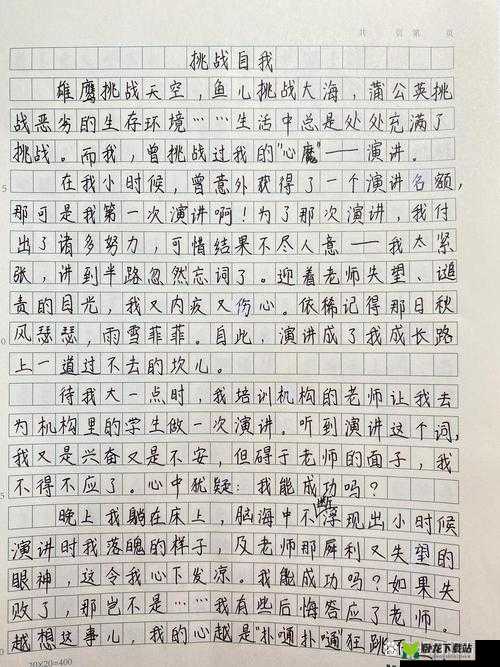 共 页 第 页
挑战自我
雄鹰挑战天空，鱼儿挑战大海，蒲公英挑
战恶劣的生存环境……生活中总是处处充满了
挑战。而我，曾挑战过我的"心魔"——演讲。
在我小时候，曾意外获得了一个演讲名额，
那可是我第一次演讲啊！为了那次演讲，我付
出了诸多努力，可惜结果不尽人意——我太紧
张，讲到半路忽然忘词了。迎着老师失望、谴
责的目光，我又内疚又伤心。依稀记得那日秋
风瑟瑟，雨雪菲菲。自此，演讲成了我成长路
上一道过不去的坎儿。
待我大一点时，我培训机构的老师让我去
为机构里的学生做一次演讲。听到演讲这个词，
我又是兴奋又是不安，但碍于老师的面子，我
不得不应了。心中犹疑：我能成功吗？
晚上我躺在床上，脑海中不断浮现出小时候
演讲时我落魄的样子，及老师那犀利又失望的
眼神，这令我心下发凉。我能成功吗？如果失
败了，那岂不是……我有些后悔答应了老师。
越想这事儿，我的心越是"扑通扑通"狂跳
20×20=400
卧龙下载站